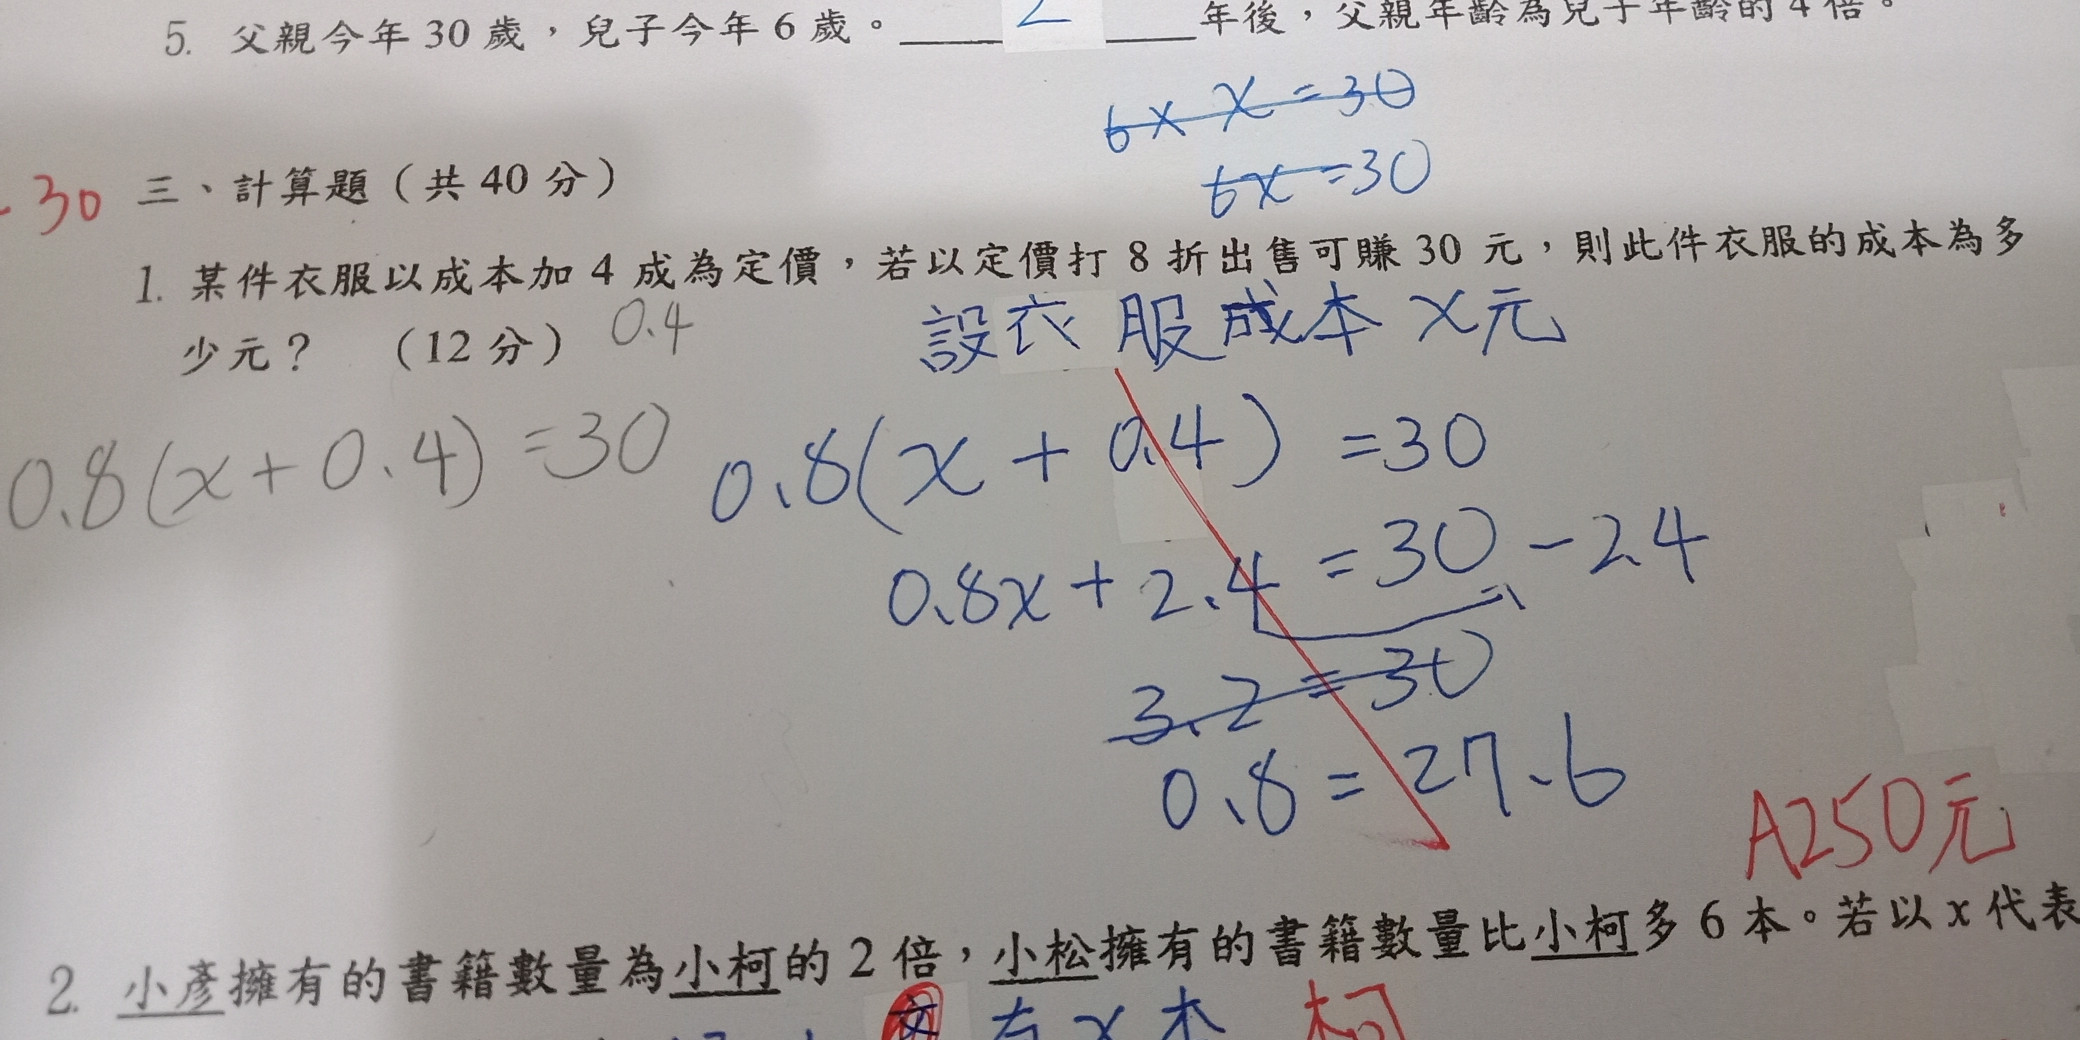 5. 父親今年 30 歲，兒子今年 6 歲。____2____年後，父親年齡為兒子年齡的 4 倍。
6 × x = 30
6x = 30
-30
三、計算題（共 40 分）
1. 某件衣服以成本加 4 成為定價，若以定價打 8 折出售可賺 30 元，則此件衣服的成本為多
少元？ （12 分） 0.4
設衣服成本 x元
0.8(x+0.4) =30
0.8(x + 0.4) =30
0.8x + 2.4 = 30 - 2.4
3.2 = 30
0.8 = 27.6
A250元
2. 小彥擁有的書籍數量為小柯的 2 倍，小松擁有的書籍數量比小柯多 6 本。若以 x 代表
有 x 本 柯